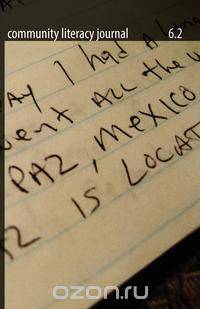 community literacy journal 6.2
AY I HAD A
ENT ALL THE
PAZ, MEXICO
Z IS LOCAT
ozon.ru